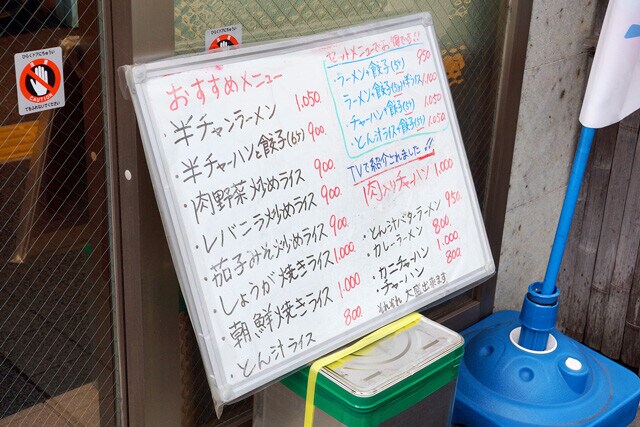 ひらくドアにちゅうい
CAUTION
てをふれないでください
おすすめメニュー
・半チャンラーメン 1.050.
・半チャーハンと餃子(6ケ) 900.
・肉野菜炒めライス 900.
・レバニラ炒めライス 900.
・茄子みそ炒めライス 900.
・しょうが焼きライス 1.000.
・朝鮮焼きライス 1.000
・とん汁ライス 800.
セットメニューで
・ラーメンと餃子(5ケ) 950
・ラーメンと餃子(5ケ)半ライス 1.100
・チャーハンと餃子(5ケ) 1.050
・とん汁ライスと餃子(5ケ) 1.050
TVで紹介されました!!
肉入りチャーハン 1.000
・とん汁バターラーメン 950.
・カレーラーメン 800.
・カニチャーハン 1.000
・チャーハン 800.
それぞれ 大盛出来ます